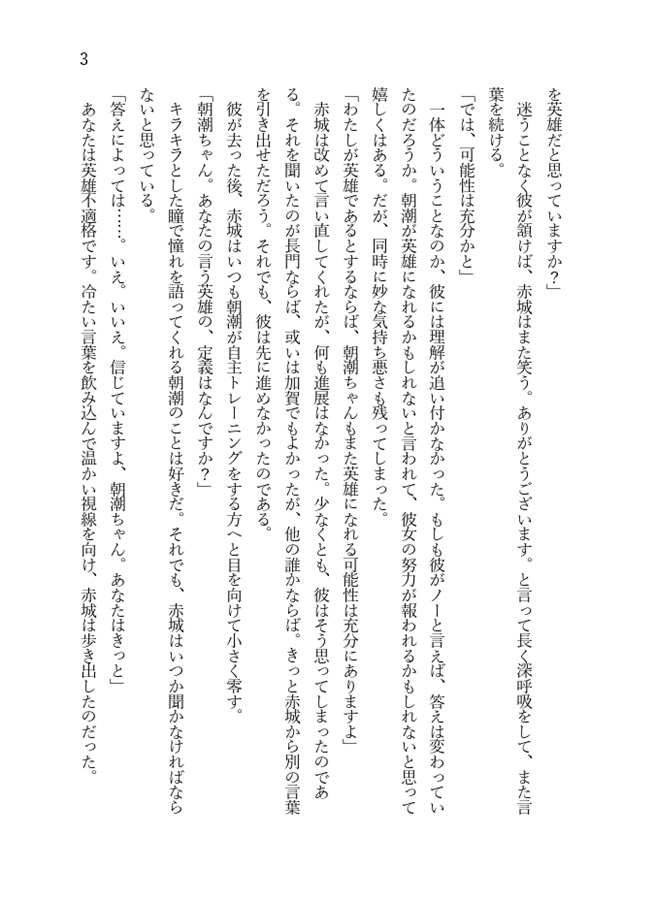 3
を英雄だと思っていますか？」
　迷うことなく彼が頷けば、赤城はまた笑う。ありがとうございます。と言って長く深呼吸をして、また言
葉を続ける。
「では、可能性は充分かと」
　一体どういうことなのか、彼には理解が追い付かなかった。もしも彼がノーと言えば、答えは変わってい
たのだろうか。朝潮が英雄になれるかもしれないと言われて、彼女の努力が報われるかもしれないと思って
嬉しくはある。だが、同時に妙な気持ち悪さも残ってしまった。
「わたしが英雄であるとするならば、朝潮ちゃんもまた英雄になれる可能性は充分にありますよ」
　赤城は改めて言い直してくれたが、何も進展はなかった。少なくとも、彼はそう思ってしまったのであ
る。それを聞いたのが長門ならば、或いは加賀でもよかったが、他の誰かならば。きっと赤城から別の言葉
を引き出せただろう。それでも、彼は先に進めなかったのである。
　彼が去った後、赤城はいつも朝潮が自主トレーニングをする方へと目を向けて小さく零す。
「朝潮ちゃん。あなたの言う英雄の、定義はなんですか？」
　キラキラとした瞳で憧れを語ってくれる朝潮のことは好きだ。それでも、赤城はいつか聞かなければなら
ないと思っている。
「答えによっては……。いえ。いいえ。信じていますよ、朝潮ちゃん。あなたはきっと」
　あなたは英雄不適格です。冷たい言葉を飲み込んで温かい視線を向け、赤城は歩き出したのだった。